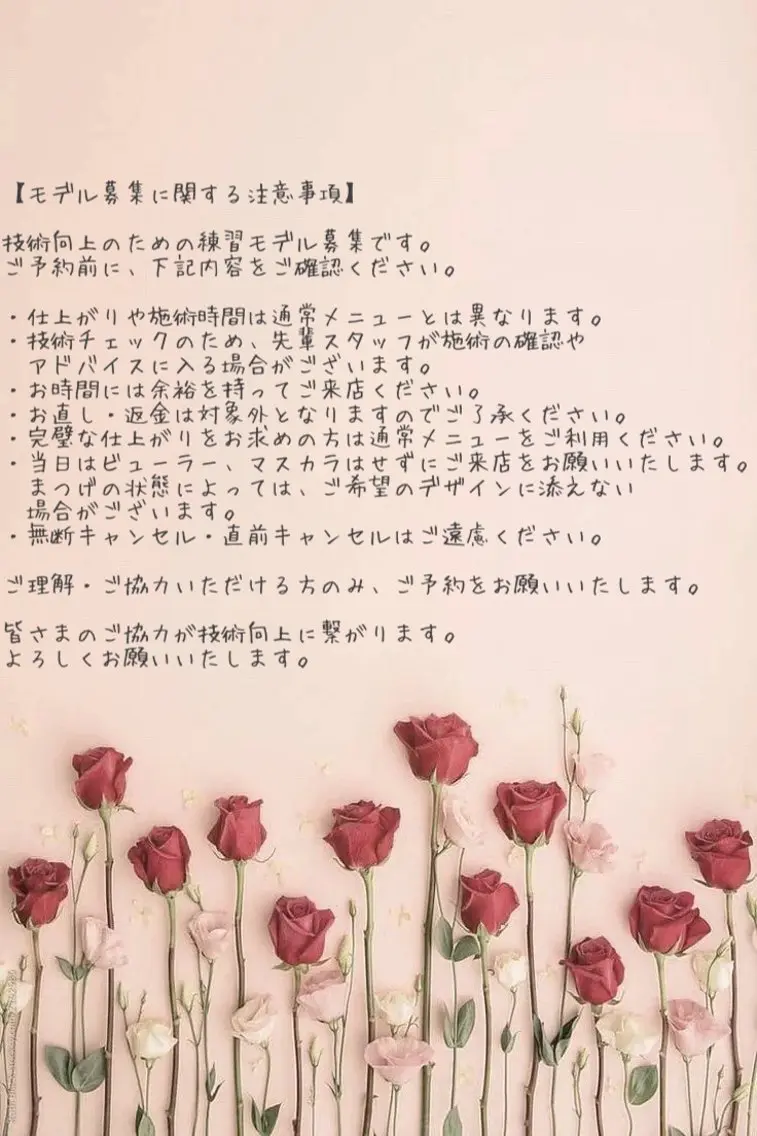 【モデル募集に関する注意事項】
技術向上のための練習モデル募集です。
ご予約前に、下記内容をご確認ください。
・仕上がりや施術時間は通常メニューとは異なります。
・技術チェックのため、先輩スタッフが施術の確認や
アドバイスに入る場合がございます。
・お時間には余裕を持ってご来店ください。
・お直し・返金は対象外となりますのでご了承ください。
・完璧な仕上がりをお求めの方は通常メニューをご利用ください。
・当日はビューラー、マスカラはせずにご来店をお願いいたします。
まつげの状態によっては、ご希望のデザインに添えない
場合がございます。
・無断キャンセル・直前キャンセルはご遠慮ください。
ご理解・ご協力いただける方のみ、ご予約をお願いいたします。
皆さまのご協力が技術向上に繋がります。
よろしくお願いいたします。